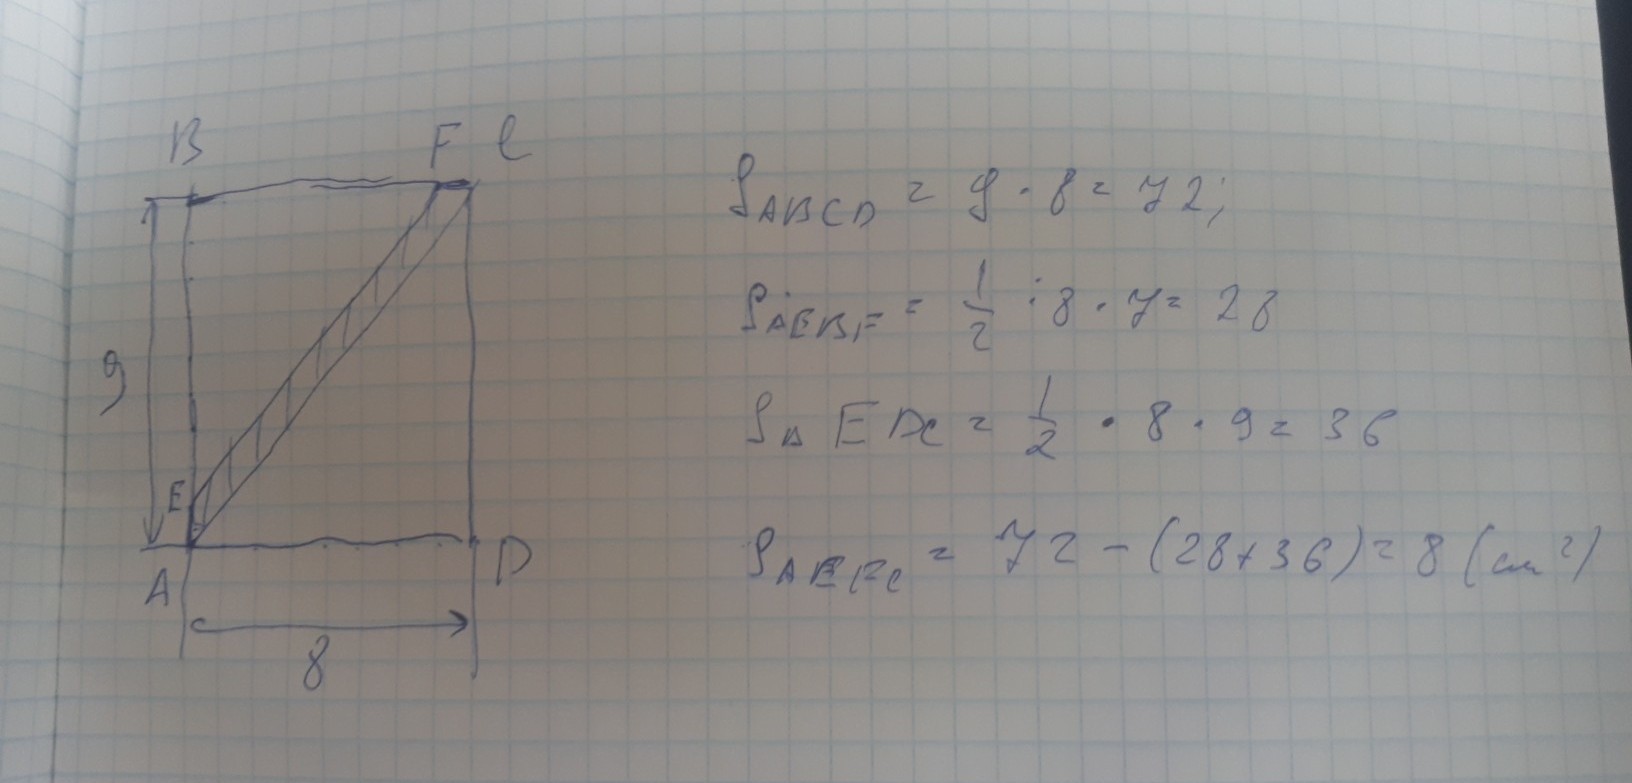 B F C
9
E
A D
8
S ABCD = 9 · 8 = 72;
S ΔEBF = 1/2 · 8 · 7 = 28
S Δ EDC = 1/2 · 8 · 9 = 36
S AEFC = 72 - (28+36) = 8 (см²)